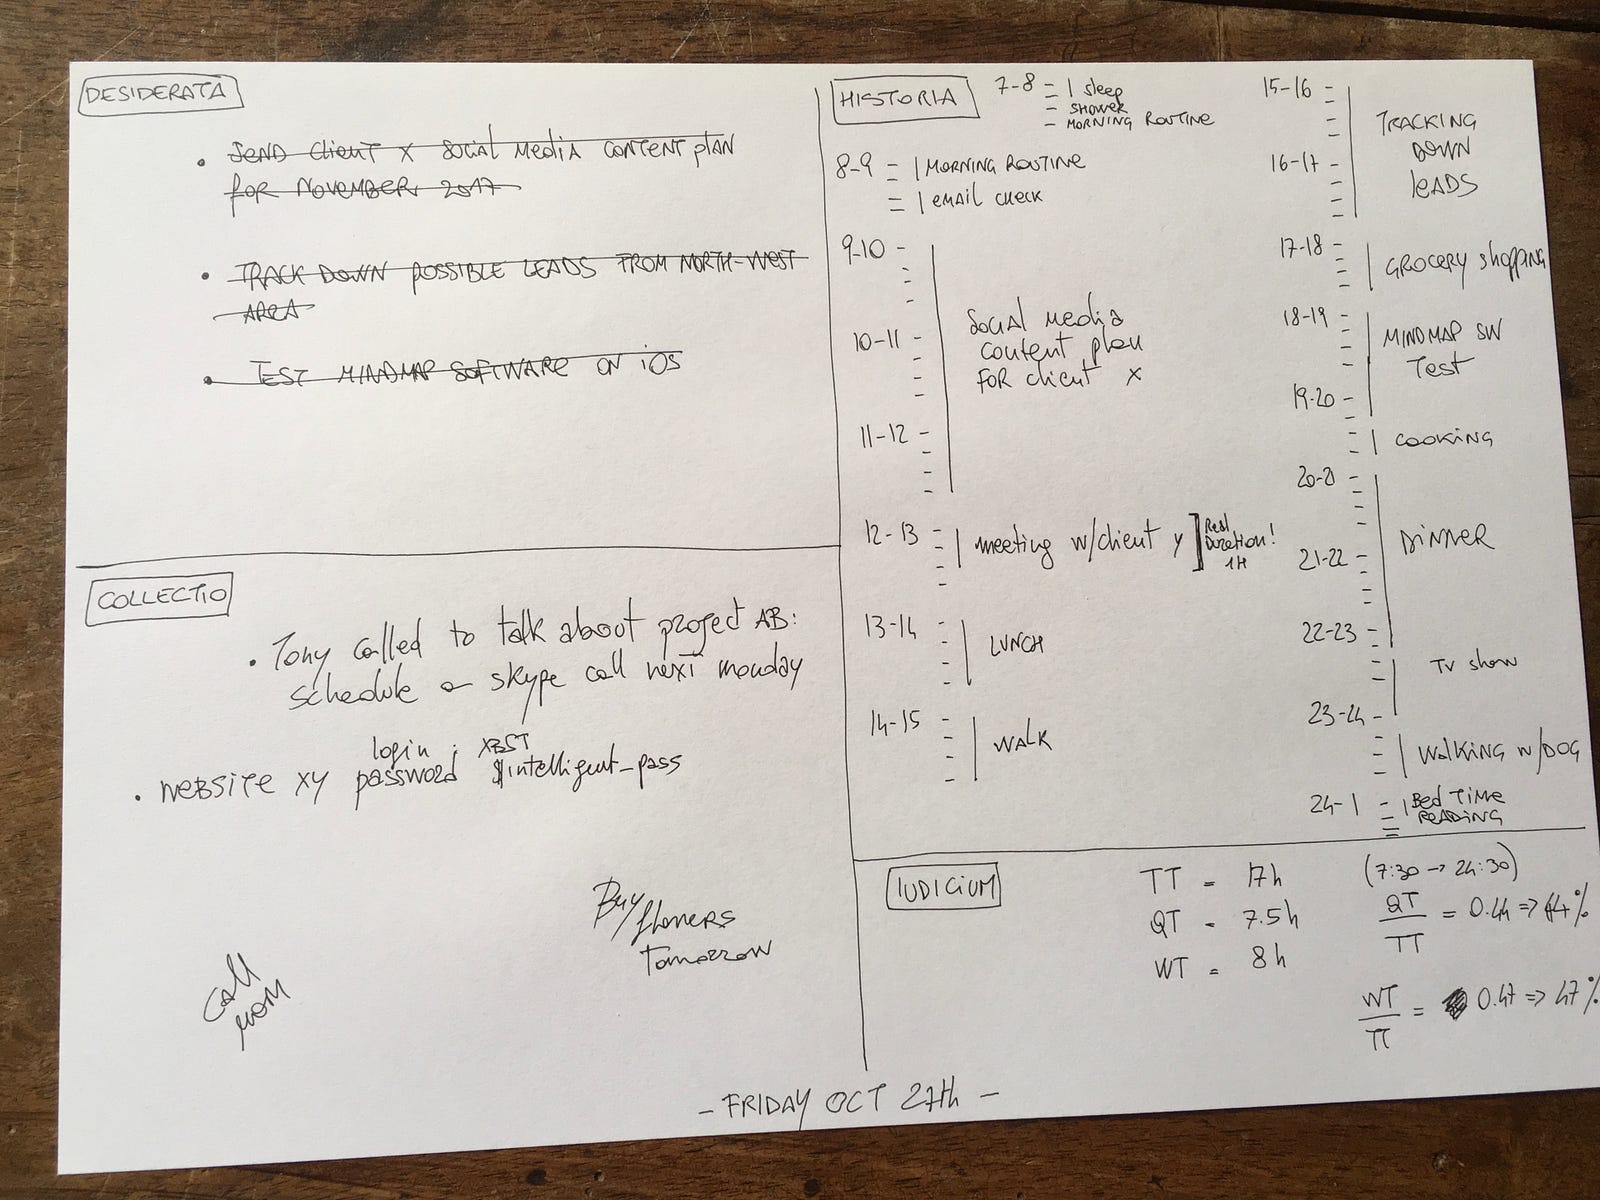 DESIDERATA
• SEND Client X SOCIAL MEDIA CONTENT plAN
FOR NOVEMBER 2017
• TRACK DOWN POSSIBLE LEADS FROM NORTH-WEST
AREA
• TEST MINDMAP SOFTWARE ON iOS
COLLECTIO
• Tony called to talk about project AB:
schedule a skype call next monday
login : XBST
• WEBSITE XY password $intelligent_pass
Buy flowers
tomorrow
Call
MOM
HISTORIA
7-8 sleep
SHOWER
MORNING ROUTINE
8-9 MORNING ROUTINE
EMAIL CHECK
9-10
10-11
SOCIAL MEDIA
content plan
FOR client X
11-12
12-13 meeting w/client y ] Real
Duration!
1H
13-14 LUNCH
14-15 WALK
15-16
TRACKING
DOWN
LEADS
16-17
17-18 GROCERY shopping
18-19 MINDMAP SW
Test
19-20
COOKING
20-21
DINNER
21-22
22-23
TV show
23-24
WALKING W/DOG
24-1 Bed TIME
READING
IUDICIUM
TT = 17h (7:30 -> 24:30)
QT = 7.5h QT/TT = 0.44 => 44%
WT = 8h
WT/TT = 0.47 => 47%
- FRIDAY OCT 27th -